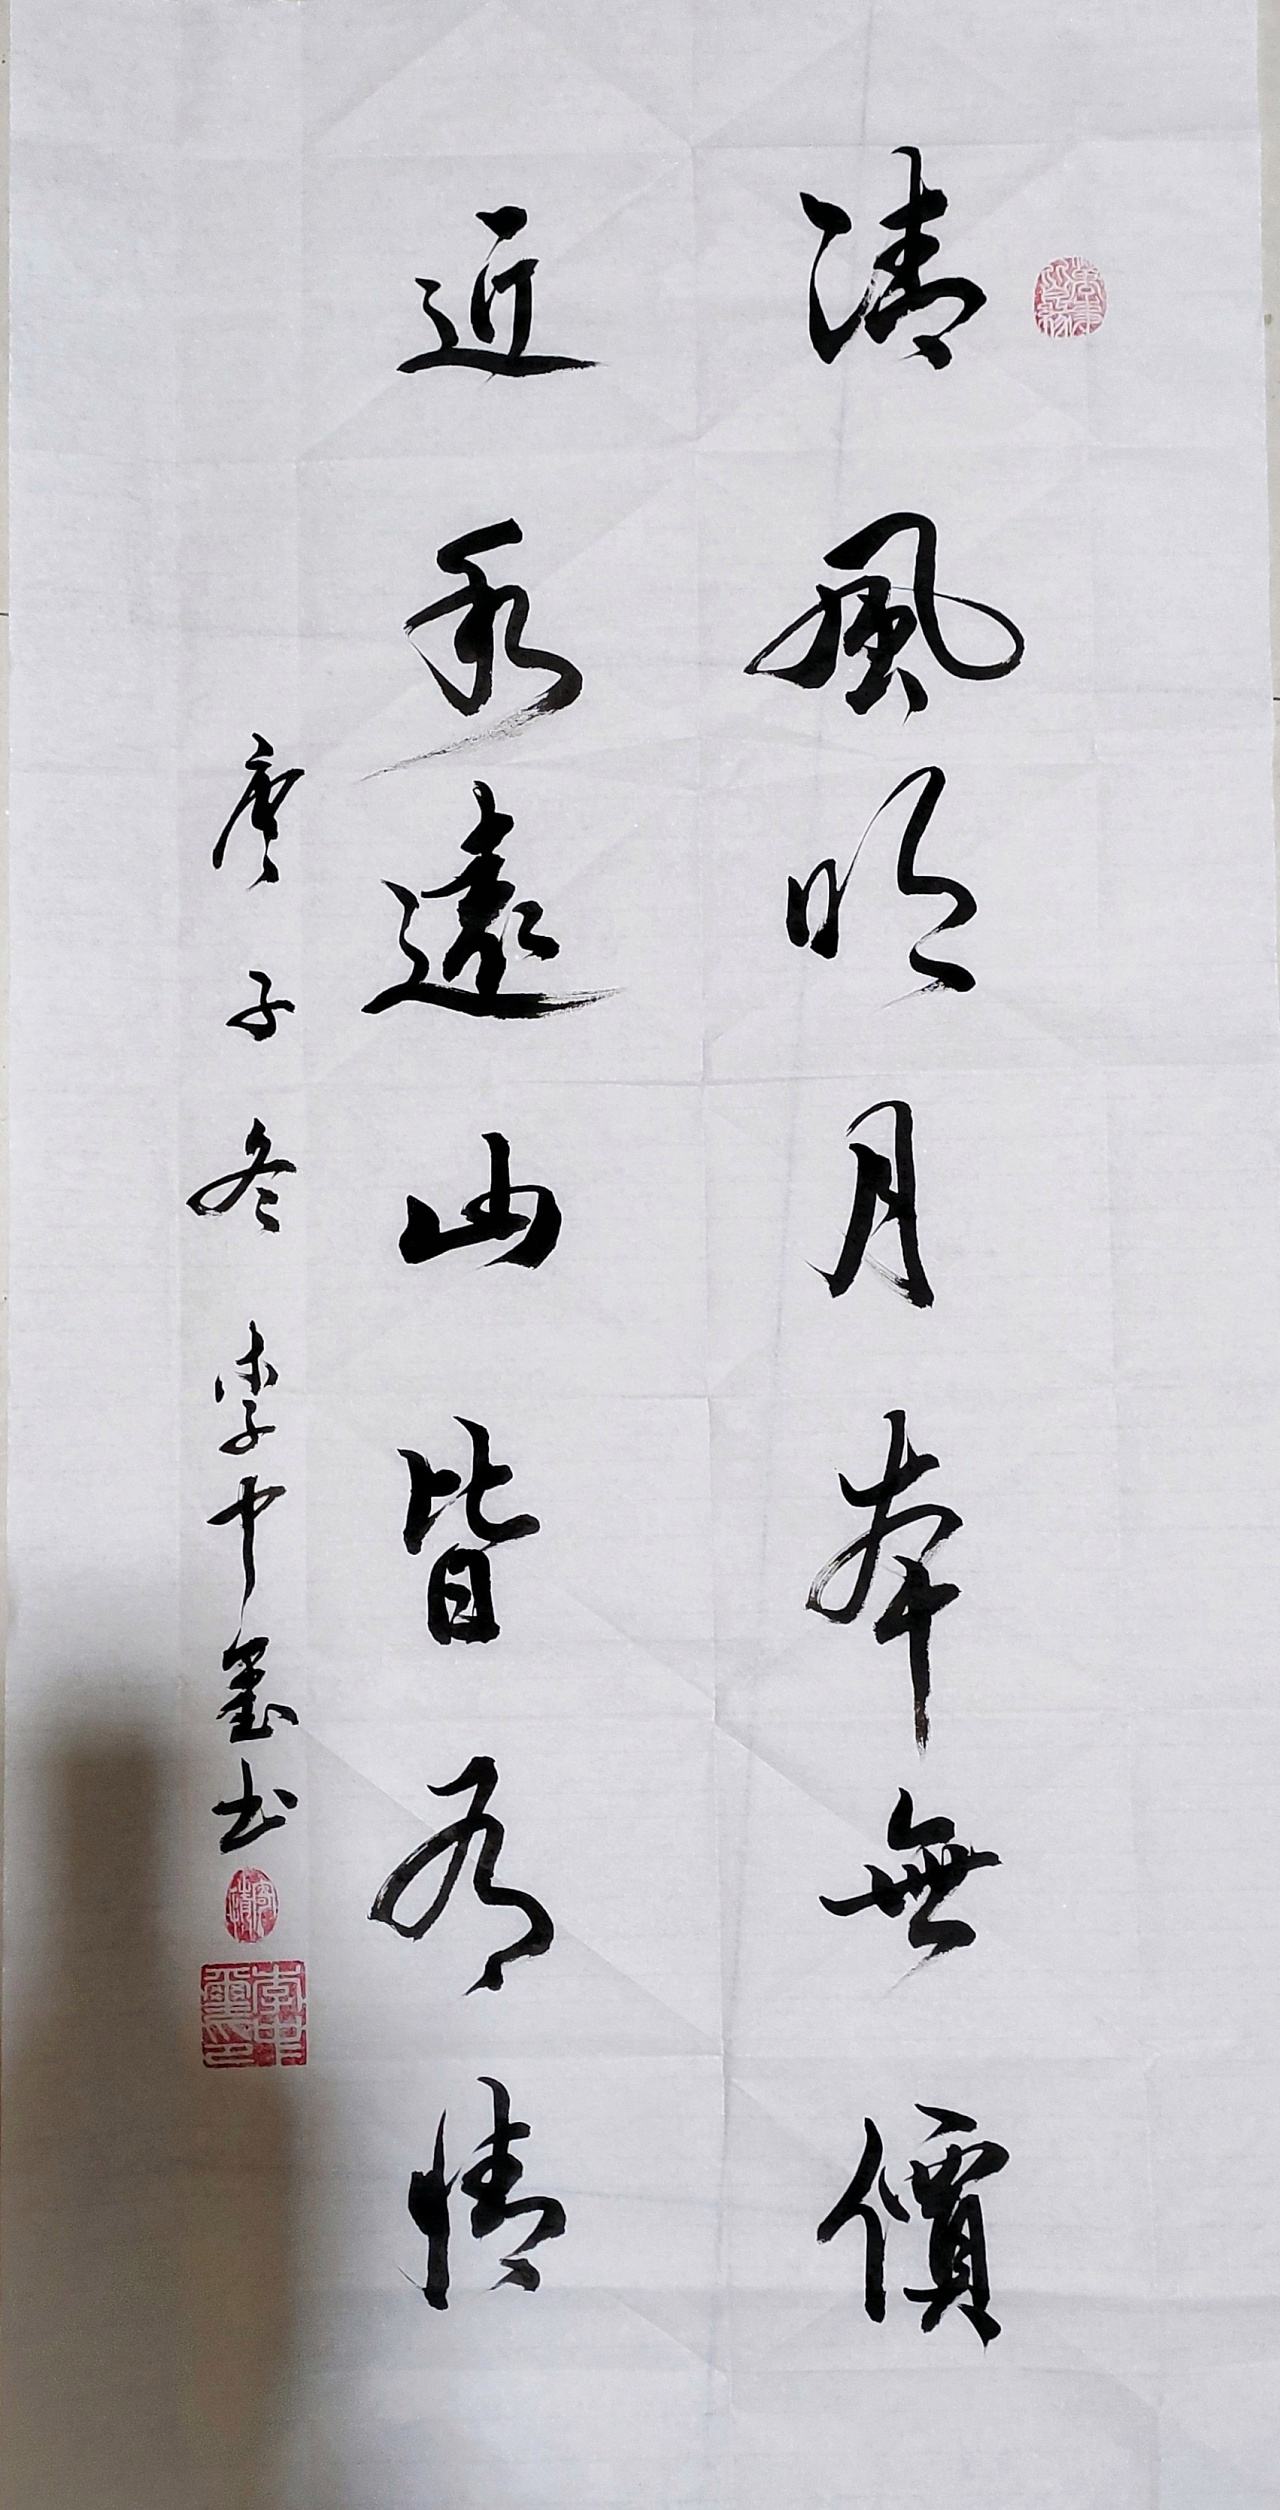 清風明月本無價
近水遠山皆有情
庚子冬 李中墨书